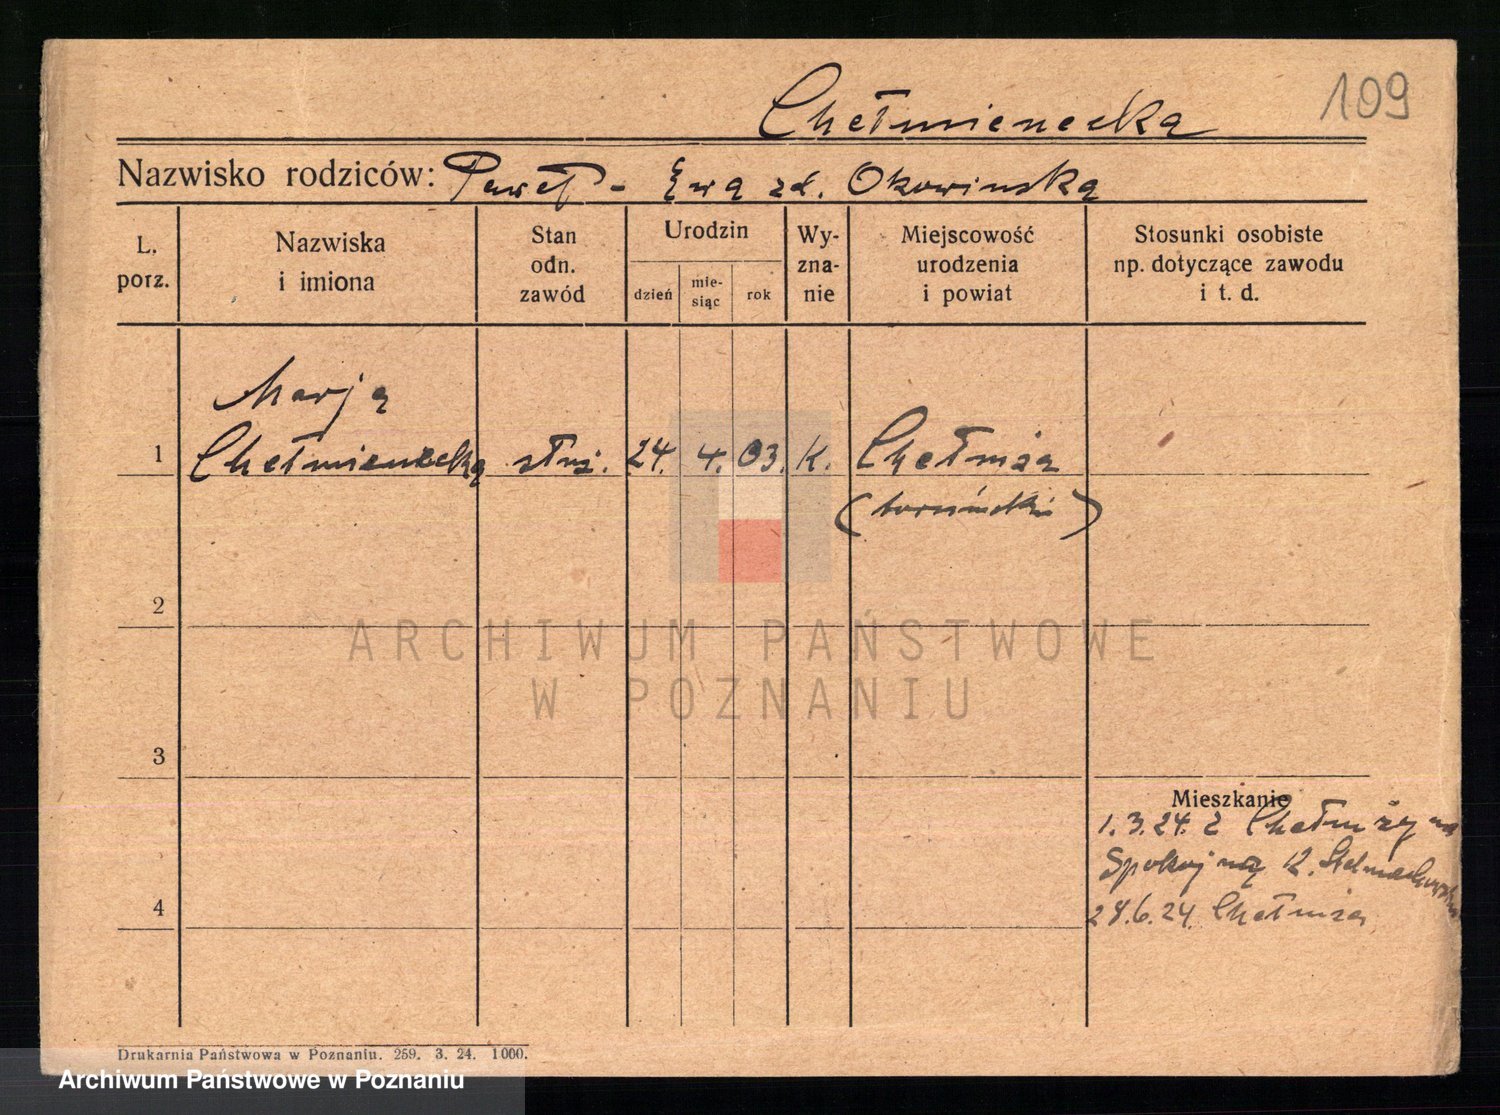 Chełmienecka
109
Nazwisko rodziców: Paweł - Ewa zd. Okowinska
L. porz.
Nazwiska i imiona
Stan odn. zawód
Urodzin
dzień
mie-
siąc
rok
Wy-
zna-
nie
Miejscowość
urodzenia
i powiat
Stosunki osobiste
np. dotyczące zawodu
i t. d.
Marja
1 Chełmienecka służ. 24. 4. 03. K. Chełmża
(toruński)
2
ARCHIWUM PAŃSTWOWE
W POZNANIU
3
Mieszkanie
1.3.24. z Chełmży na
Spokojną 12.
4
28.6.24. Chełmża
Drukarnia Państwowa w Poznaniu. 259. 3. 24. 1000.
Archiwum Państwowe w Poznaniu